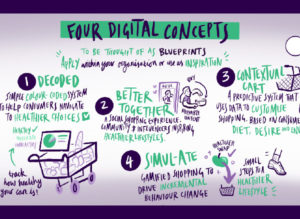 FOUR DIGITAL CONCEPTS
TO BE THOUGHT OF AS BLUEPRINTS
APPLY within your organisation or use as INSPIRATION
1 DECODED
SIMPLE COLOUR-CODED SYSTEM
TO HELP CONSUMERS NAVIGATE
TO HEALTHIER CHOICES
HEALTHY
track
how healthy
your cart is!
2 BETTER
TOGETHER
A SOCIAL SHOPPING EXPERIENCE.
COMMUNITY & INFLUENCERS INSPIRING
HEALTHIER LIFESTYLES.
3 CONTEXTUAL
CART
A PREDICTIVE SYSTEM THAT
USES DATA TO CUSTOMISE
SHOPPING, BASED ON CUSTOMER
DIET, DESIRE AND
4 SIMUL-ATE
GAMIFIED SHOPPING TO
DRIVE INCREMENTAL
BEHAVIOUR CHANGE
HEALTHIER
SWAP
SMALL
STEPS TO A
HEALTHIER
LIFESTYLE